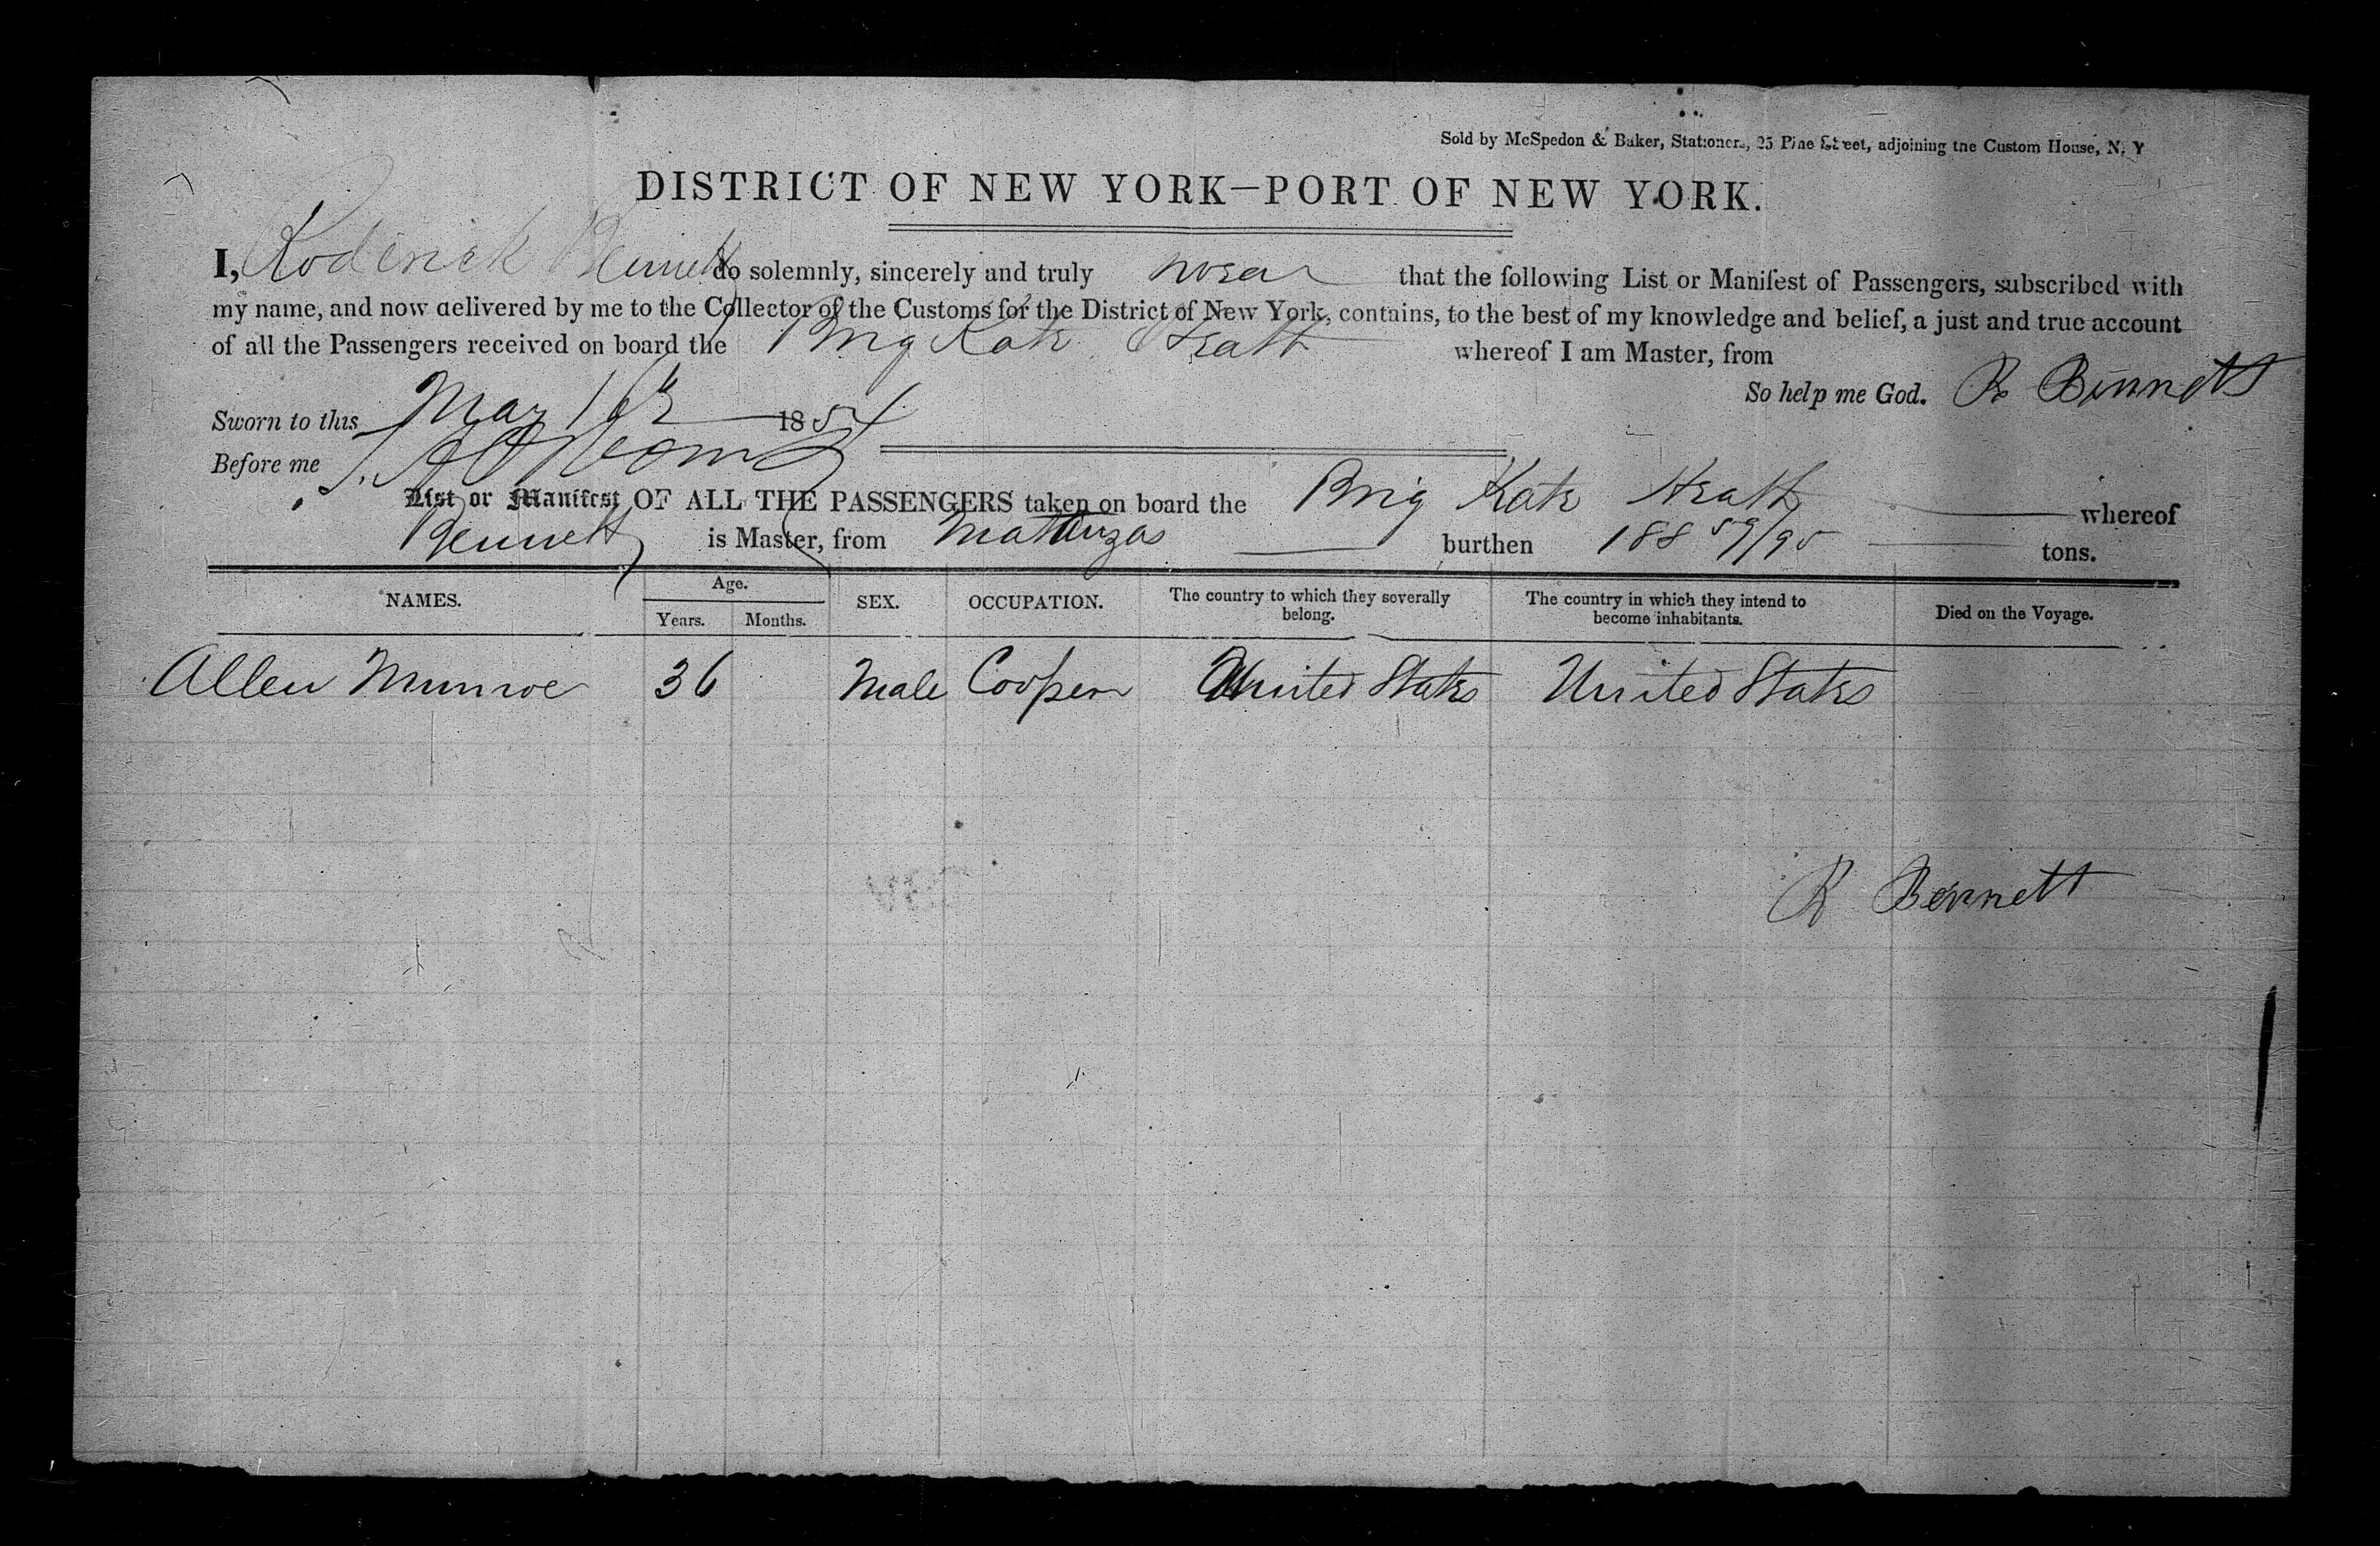 Sold by McSpedon & Baker, Stationers, 25 Pine Street, adjoining the Custom House, N. Y
DISTRICT OF NEW YORK—PORT OF NEW YORK.
I, Roderick Bennett do solemnly, sincerely and truly swear that the following List or Manifest of Passengers, subscribed with
my name, and now delivered by me to the Collector of the Customs for the District of New York, contains, to the best of my knowledge and belief, a just and true account
of all the Passengers received on board the Brig Kate Heath whereof I am Master, from
So help me God. R Bennett
Sworn to this May 16th 1854
Before me
List or Manifest OF ALL THE PASSENGERS taken on board the Brig Kate Heath whereof
Bennett is Master, from Matanzas burthen 188 59/95 tons.
NAMES. Age. Years. Months. SEX. OCCUPATION. The country to which they severally belong. The country in which they intend to become inhabitants. Died on the Voyage.
Allen Munroe 36 Male Cooper United States United States
R Bennett